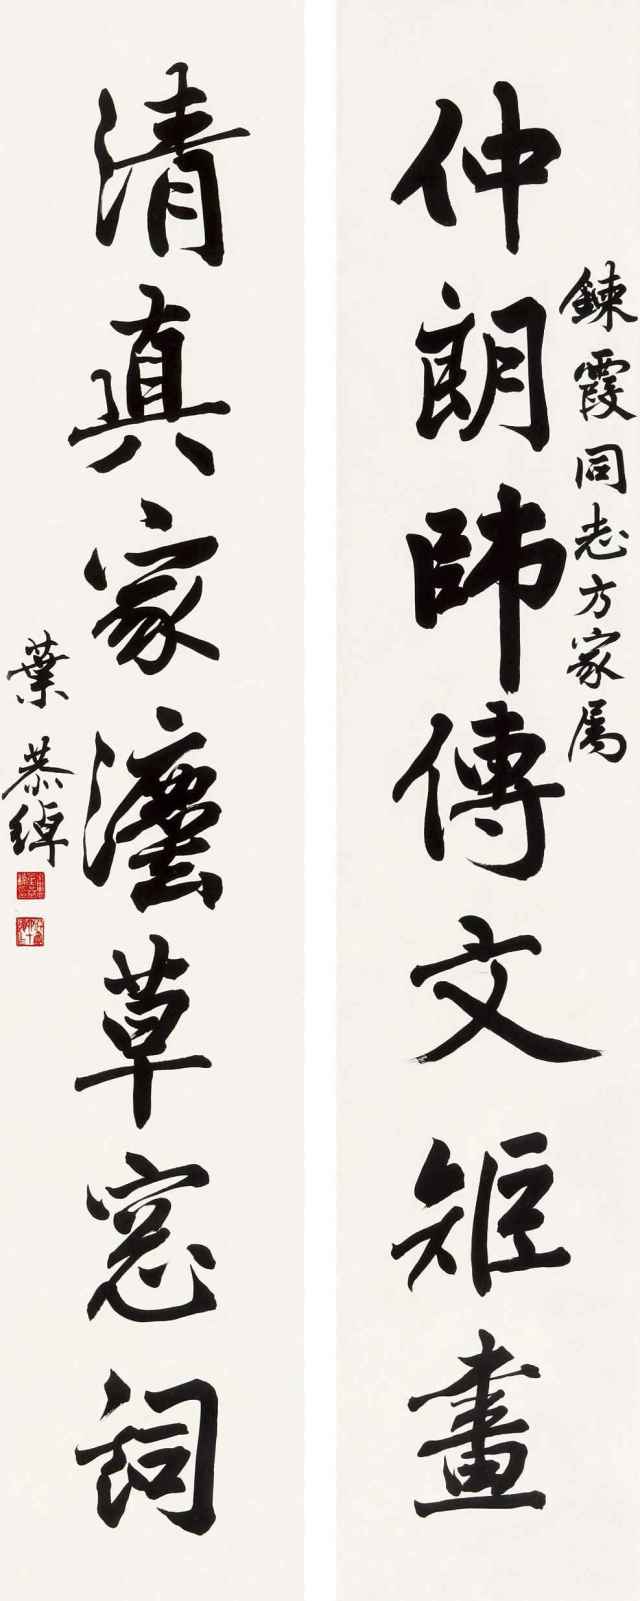 鍊霞同志方家属
仲朗師傳文矩畫
清真家瀍草窓詞
葉恭綽